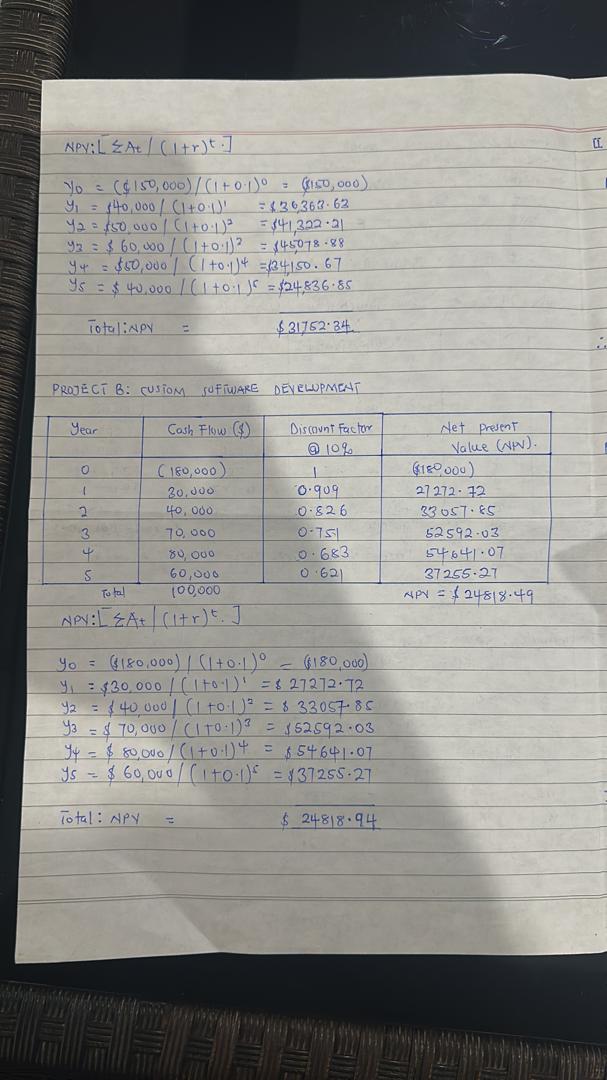 NPV:[ΣAt / (1+r)^t.]
Y0 = ($150,000) / (1+0.1)^0 = ($150,000)
Y1 = $40,000 / (1+0.1)^1 = $36363.63
Y2 = $50,000 / (1+0.1)^2 = $41,322.31
Y3 = $60,000 / (1+0.1)^3 = $45078.88
Y4 = $50,000 / (1+0.1)^4 = $34150.67
Y5 = $40,000 / (1+0.1)^5 = $24,836.85
Total: NPV = $31752.34
PROJECT B: CUSTOM SOFTWARE DEVELOPMENT
Year Cash Flow ($) Discount Factor @ 10% Net present Value (NPV).
0 (180,000) 1 ($180000)
1 30,000 0.909 27272.72
2 40,000 0.826 33057.85
3 70,000 0.751 52592.03
4 80,000 0.683 54641.07
5 60,000 0.621 37255.27
Total 100,000 NPV = $24818.49
NPV:[ΣAt / (1+r)^t.]
Y0 = ($180,000) / (1+0.1)^0 = ($180,000)
Y1 = $30,000 / (1+0.1)^1 = $27272.72
Y2 = $40,000 / (1+0.1)^2 = $33057.85
Y3 = $70,000 / (1+0.1)^3 = $52592.03
Y4 = $80,000 / (1+0.1)^4 = $54641.07
Y5 = $60,000 / (1+0.1)^5 = $37255.27
Total: NPV = $24818.94